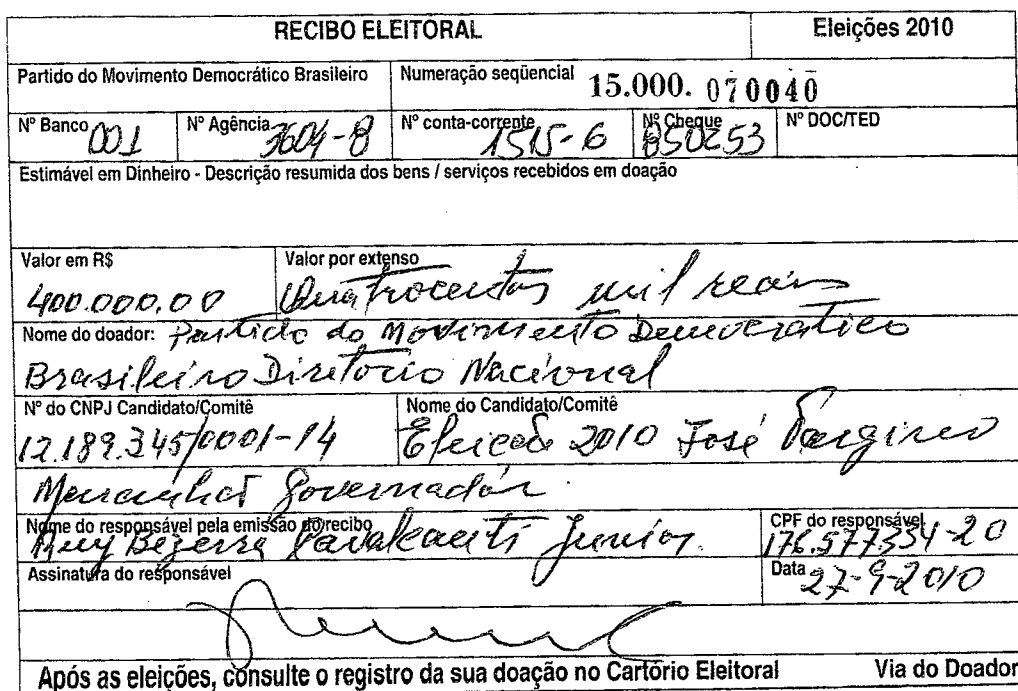 RECIBO ELEITORAL Eleições 2010
Partido do Movimento Democrático Brasileiro Numeração seqüencial 15.000. 070040
Nº Banco 001 Nº Agência 3604-8 Nº conta-corrente 1515-6 Nº Cheque 850253 Nº DOC/TED
Estimável em Dinheiro - Descrição resumida dos bens / serviços recebidos em doação
Valor em R$ Valor por extenso
400.000.00 Quatrocentos mil reais
Nome do doador: Partido do Movimento Democratico
Brasileiro Diretorio Nacional
Nº do CNPJ Candidato/Comitê Nome do Candidato/Comitê
12.189.345/0001-14 Eleição 2010 José Targino
Maranhão Governador
Nome do responsável pela emissão do recibo CPF do responsável
Ruy Bezerra Cavalcanti Junior 176.577.334-20
Assinatura do responsável Data 27-9-2010
Após as eleições, consulte o registro da sua doação no Cartório Eleitoral Via do Doador